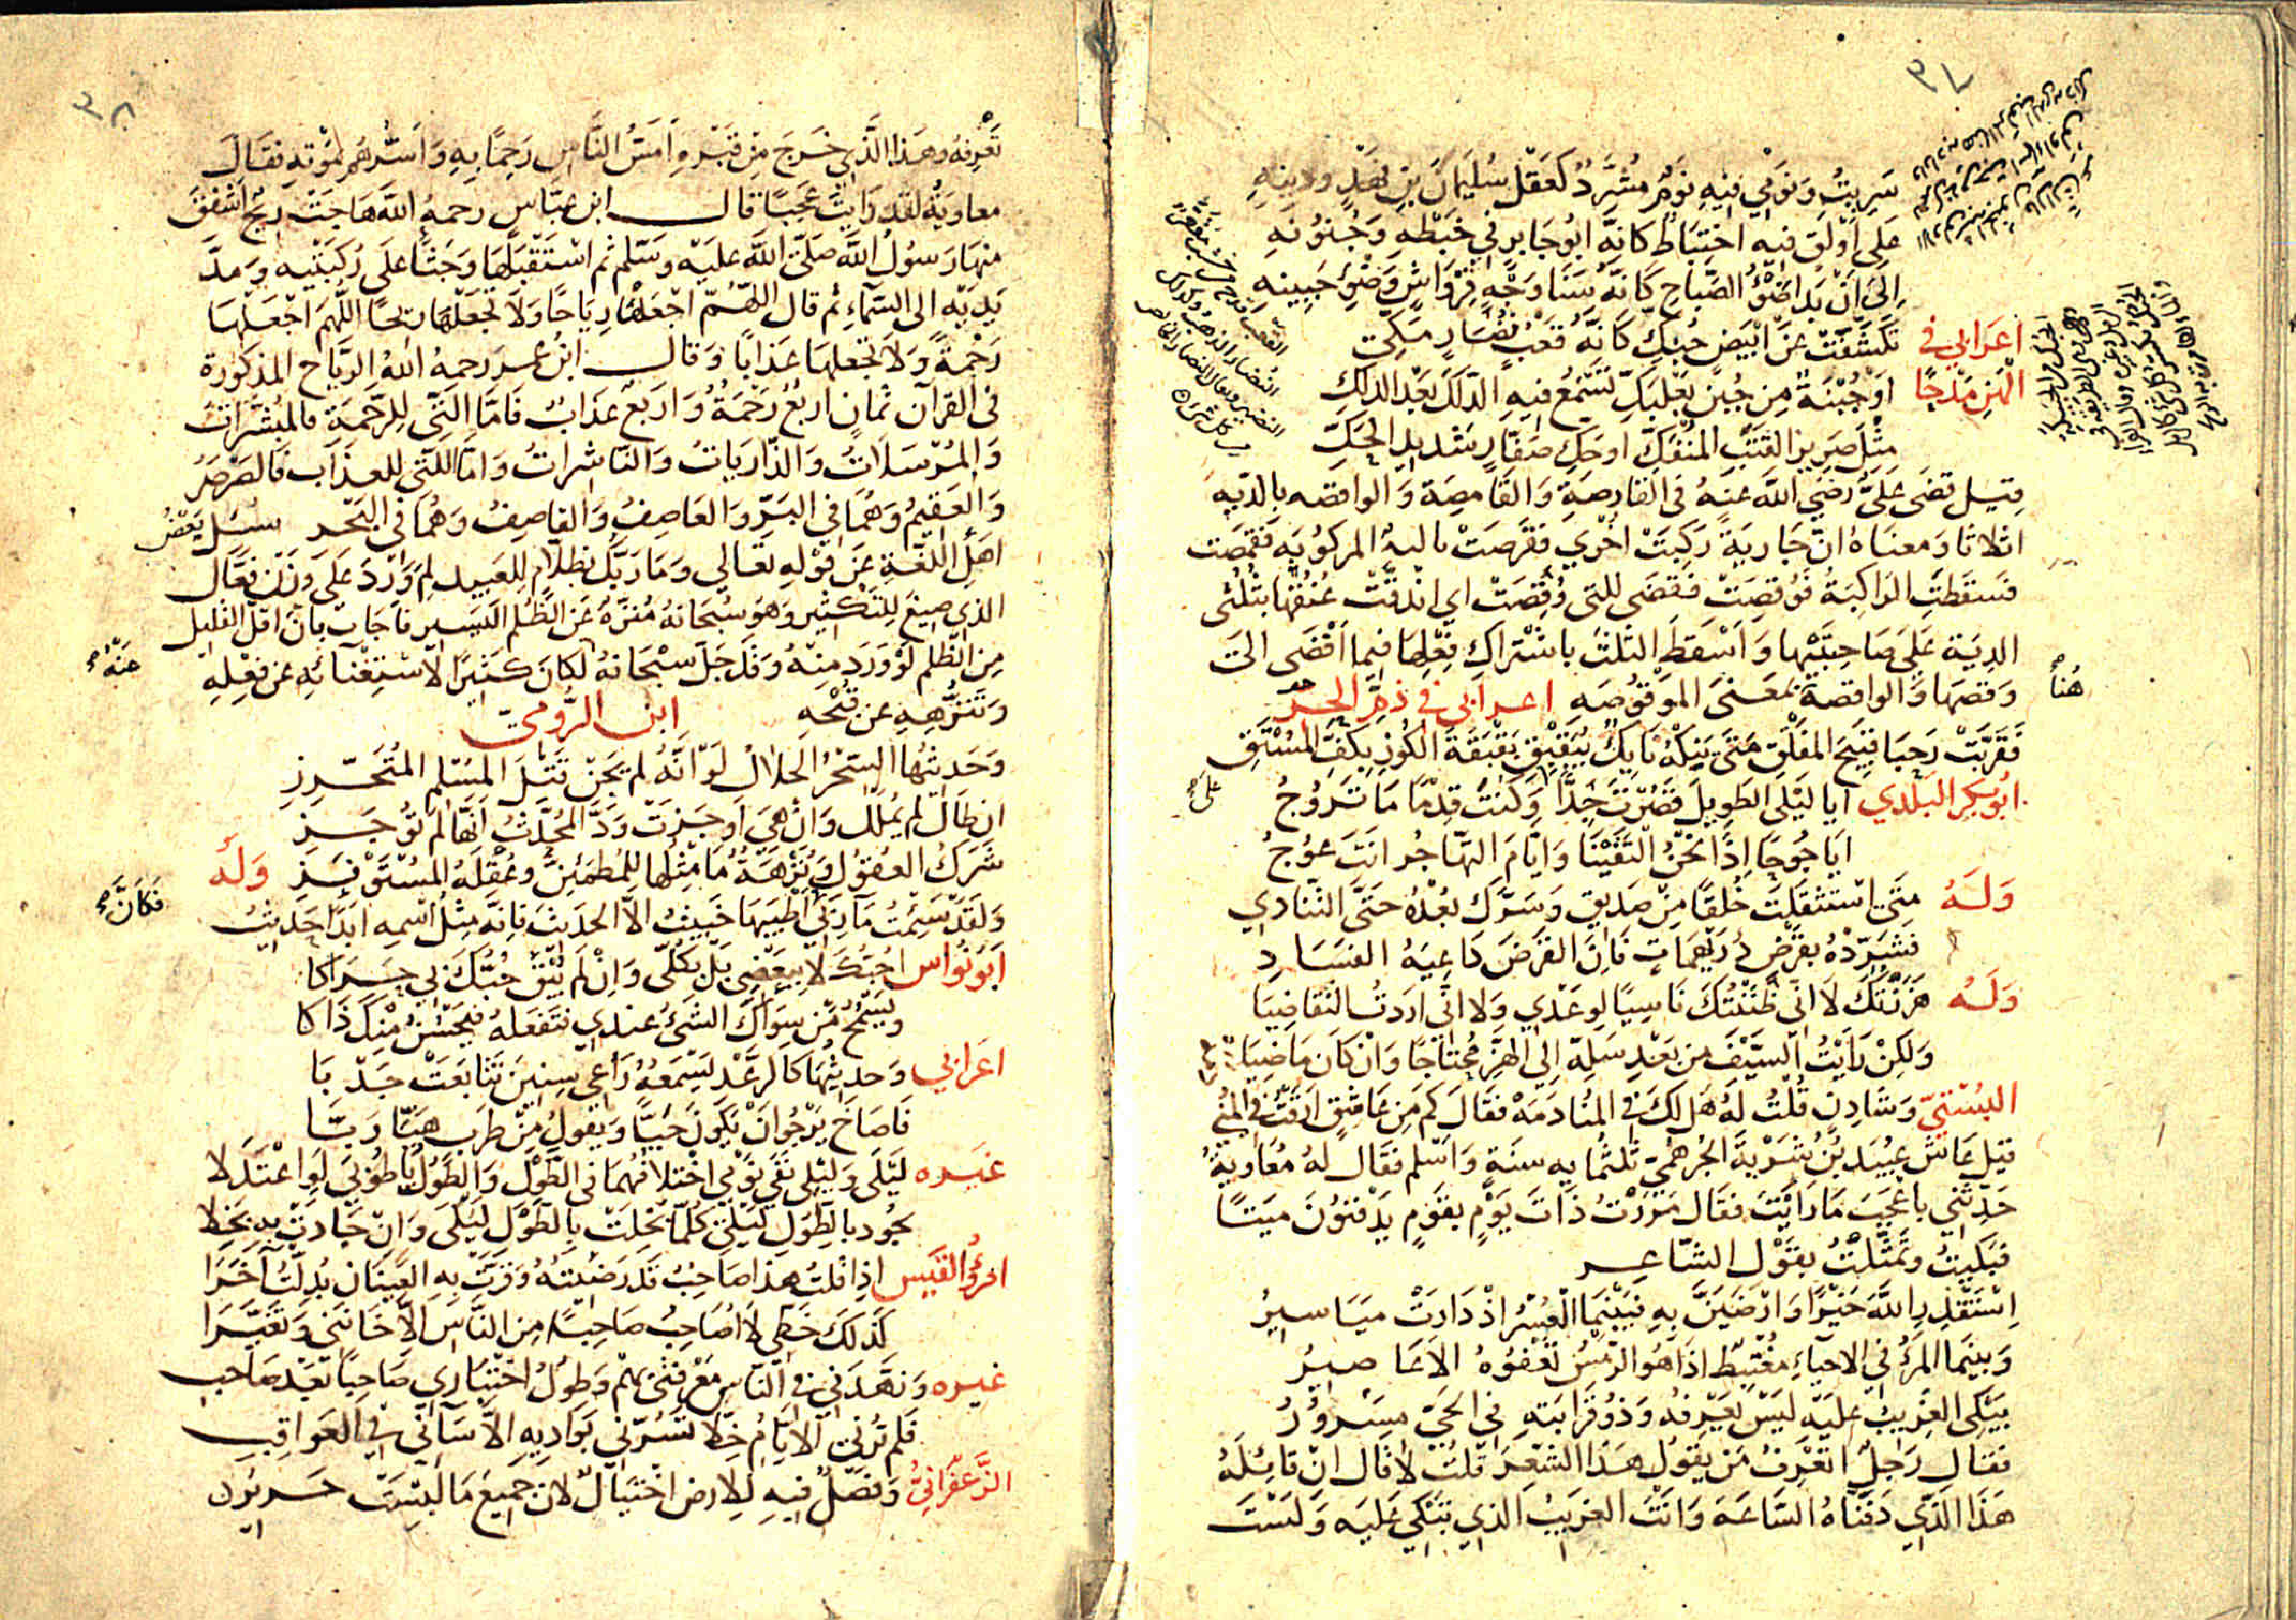 ٣٧
سَرِيتُ وَنَوْمِي فِيهِ نَوْمٌ مُشَرَّدٌ كَعَقْلِ سُلَيمَانَ بنِ فَهْدٍ ودِينِهِ
عَلى اَوْلَقٍ فِيهِ اختِبَاطٌ كانهُ ابُو جَابرٍ في خَبْطِهِ وَجُنُونهِ
اِلَى اَنْ بَدا ضَوْءُ الصَّبَاحِ كَانهُ سَنَا وَجْهِ قِرْوَاشٍ وَضَوْءِ جَبِينهِ
اعرَابي في تكشَّفَتْ عَنْ ابيَضٍ كَانهُ قعْبُ نُضَارٍ مَكّي
الهَنِ مَدحًا اوْ جُبْنَةٌ مِن جُبن بَعْلَبَكِّ تَسْمَعُ فيهِ الدَّلكَ بَعْد الدلكِ
مِثْلَ صَرِيرِ القَتَبِ المُنْفَكِّ او حَكِّ صَفّارٍ شَديدِ الحَكِّ
قيل قضَى عَليٌّ رَضيَ اللهُ عنهُ في القارصَةِ وَالقَامِصَة وَالواقصه بالدّيه
اثلاثا وَمعنَاهُ انّ جَاريَةً رَكِبَتْ اخرَي فقرَصَتْ ثالثةٌ المركوُبَه فقمصَت
فسَقطَتِ الراكبَةُ فوُقصَتْ فقضَى للتي وُقصَتْ اي اندَقَّتْ عُنُقُهَا بثُلثَى
الديَة عَلى صَاحِبَتَيْها وَاسْقطَ الثلثَ باشْتراكِ فِعْلِهَا فيما اَفْضَى الىَ
وَقصهَا وَالواقصة بمعَنَى الموْقوُصَه اعرابي في ذمّ الحرّ
هُنا
ابُو بَكر البَلَدي ايَا لَيْلَى الطويلَ قصُرْتَ جِدًّا وَكنتَ قِدْمًا مَا تَروُجُ
ايَا جُوجَا اِذَا نَحْنُ التَقَيْنَا وَايّامَ التهَاجُر انتَ عوُجُ
وَلَهُ مَتَى اسْتَثقَلتَ خُلقًا مِنْ صَديقٍ وَسَرَّكَ بُعْدُهُ حَتّى التنادي
فشَرّدْهُ بقَرْضِ دُرَيْهمَاتٍ فَاِنَ القرضَ دَاعِيَهُ الفسَادِ
وَلَهُ هَزَزْتُكَ لاَ انّى ظنَنْتُكَ نَاسِيًا لِوَعْدي وَلا انّى اَردتُ التقَاضِيَا
وَلكِنْ رَايْتُ السَّيْفَ مِن بَعْد سَلّهِ اِلى الهَزِّ مُحتاجًا وَانْ كانَ مَاضِيَا
البُسْتيّ وَشادِنٍ قُلتُ لهُ هَل لكَ في المنَادَمَهْ فقالَ كم مِن عَاشِقٍ
قيل عَاشَ عبيدُ بْنُ شرْيَة الجرْهميُّ ثلثمايه سنَةٍ وَاسْلم فقال لهُ مُعَاويةُ
حَدِّثني باعْجَبَ مَا رَايْتَ فقال مَرَرْتُ ذَاتَ يَوْمٍ بقومٍ يَدْفنوُنَ ميّتًا
فبَكيتُ وَتمثَّلتُ بقَوْل الشاعِر
اِسْتَقْدِرِ اللهَ خيْرًا وَارْضَيَنَّ بهِ فبَيْنَمَا العُسْرُ اذْ دَارَتْ ميَاسيرُ
وَبينَمَا المَرْءُ في الاحيَاءِ مغْتبِطٌ اذا هُوَ الرَّمْسُ تَعْفوُهُ الاعَاصِيرُ
يَبكى الغرِيبُ عليْهِ ليْسَ يَعْرِفهُ وَذوُ قرَابَتهِ في الحَيّ مَسْروُرُ
فقال رَجلٌ اتعْرفُ مَن يقوُل هَذا الشِعْرَ قلتُ لا قال انّ قائِلَهُ
هَذا الذي دَفنّاهُ السّاعَهَ وَانتَ الغريبُ الذي تبْكي عَليه وَلسْتَ
٣٨
تَعْرِفهُ وهَذا الَّذي خَرَجَ مِن قَبْرهِ اَمَسُّ النَّاسِ رَحِمًا بهِ وَاَسَرُّهُم لِمَوْتهِ فقالَ
معاويَةُ لقد رَايْتَ عَجَبًا قال ابن عَبّاس رحمهُ الله هَاجَتْ ريحٌ اشفقَ
منهَا رَسوُلُ اللهِ صَلّى الله عليْه وسَلّم ثم اسْتَقبَلهَا وَجَثا عَلى رُكبَتيْه وَمَدَّ
يَدَيْه الى السَّمآءِ ثم قال اللهُمّ اجْعَلْهَا ريَاحًا وَلا تجْعَلْهَا ريحًا اللّهُمَ اجْعَلْهَا
رَحْمةً وَلا تجْعَلهَا عَذابًا وَقال ابْنُ عمرَ رحمهُ اللهُ الرّيَاح المذكوُرة
في القرآن ثمَانٍ اربعٌ رَحْمَةٌ وَاَربَعٌ عَذابٌ فَامَّا التي لِلرَّحْمَةِ فالمبُشّراتُ
وَالمُرْسَلاَتُ وَالذّاريَاتُ وَالنّاشراتُ وَامّا اللتى للعذاب فَالصَّرْصَرُ
وَالعَقيمُ وَهُمَا في البَرّ وَالعَاصِفُ وَالقاصِفُ وَهُمَا في البَحْر سُئلَ بَعْضُ
اَهْلِ اللّغَةِ عَن قوْلهِ تعَالى وَمَا رَبُّكَ بظَلاّمٍ لِلعَبيد لِمَ وَرَدَ عَلى وَزْن فَعَّالٍ
الذي صِيغ لِلتكْثير وَهوَ سُبْحَانهُ مُنزّهٌ عَن الظُّلم اليَسير فاجَابَ بانّ اقلّ القليل
مِن الظُّلم لوْ وَرَدَ مِنْهُ وَقد جَلّ سبْحَانهُ لكانَ كثيرًا لاسْتِغْنآئهِ عَن فعْلهِ
عَنْهُ
وَتَنزُّههِ عَن قُبْحِهِ ابن الرُّومى
وَحَديثُها السّحْرُ الحلالُ لَوْ اَنّهُ لم يَجْنِ قتْلَ المُسْلمِ المُتَحَرّزِ
ان طَالَ لم يُمْلَلْ وَانْ هيَ اَوْجَزتْ وَدَّ المُحَدَّثُ اَنّهَا لم توُجَزِ
شَرَكُ العُقوُلِ وَنُزْهَةٌ مَا مِثْلُهَا لِلمُطمَئِنِّ وَعُقْلَةُ المُسْتَوْفِزِ وَلَهُ
وَلقَدْ سَئِمْتُ مآرِبي اَطْيَبُهَا خَبيثُ الاّ الحَديثَ فانّهُ مِثْلُ اسْمِهِ ابَدًا حَديثُ
فكَانَّ
ابَوُ نُواس اُحِبُّكَ لا ببَعْضِى بَلْ بِكُلّى وَاِنْ لَم يُبْقِ حُبُّكَ بى حَرَاكا
ويَسْمُجُ مِن سِوَاكَ الشَّىءُ عندي فتفعَلهُ فيَحْسُنُ مِنْكَ ذَاكا
اعَرابي وَحديثُهَا كالرَّعْد يَسْمَعُهُ رَاعى سِنينَ تتَابعَتْ جَدْبَا
فَاصَاخَ يَرْجُو اَنْ يَكوُنَ حَيًا وَيقوُلُ مِنْ طرَبٍ هَيَا رَبّا
غَيره لَيْلَى وَلَيْلِى نَفَى نَوْمي اختلافُهُمَا في الطّوْل وَالطَّوْل يا طُوبيَ لَو اعْتَدَلا
يجُود بالطوْل لَيْلى كلّمَا بَخِلَتْ بالطَّوْل لَيْلَى وَانْ جَادَتْ بهِ بَخِلا
امْرُؤُ القَيس اِذا قلتُ هَذا صَاحِبٌ قَد رَضيتُهُ وَقرَّتْ بهِ العَيْنَانِ بُدِلتُ آخَرَا
كَذلكَ حَظّى لا اُصَاحِبُ صَاحِبًا مِن النّاسِ اِلاّ خَاننى وَتغَيّرَا
غَيره وَزهَّدَني في النّاس مَعْرفتى بهُمْ وَطوُلُ اخْتبَاري صَاحِبًا بَعْدَ صَاحبِ
فلم تُرني الايامُ خِلاّ تَسُرّني بَوَادِيهِ الاَّ سَآءَني في العَواقبِ
الزَّعفَرانيُّ وَفصْلٌ فيهِ لِلارضِ اختيَالٌ لان جَميعَ مَا لبسَت حَريرُ